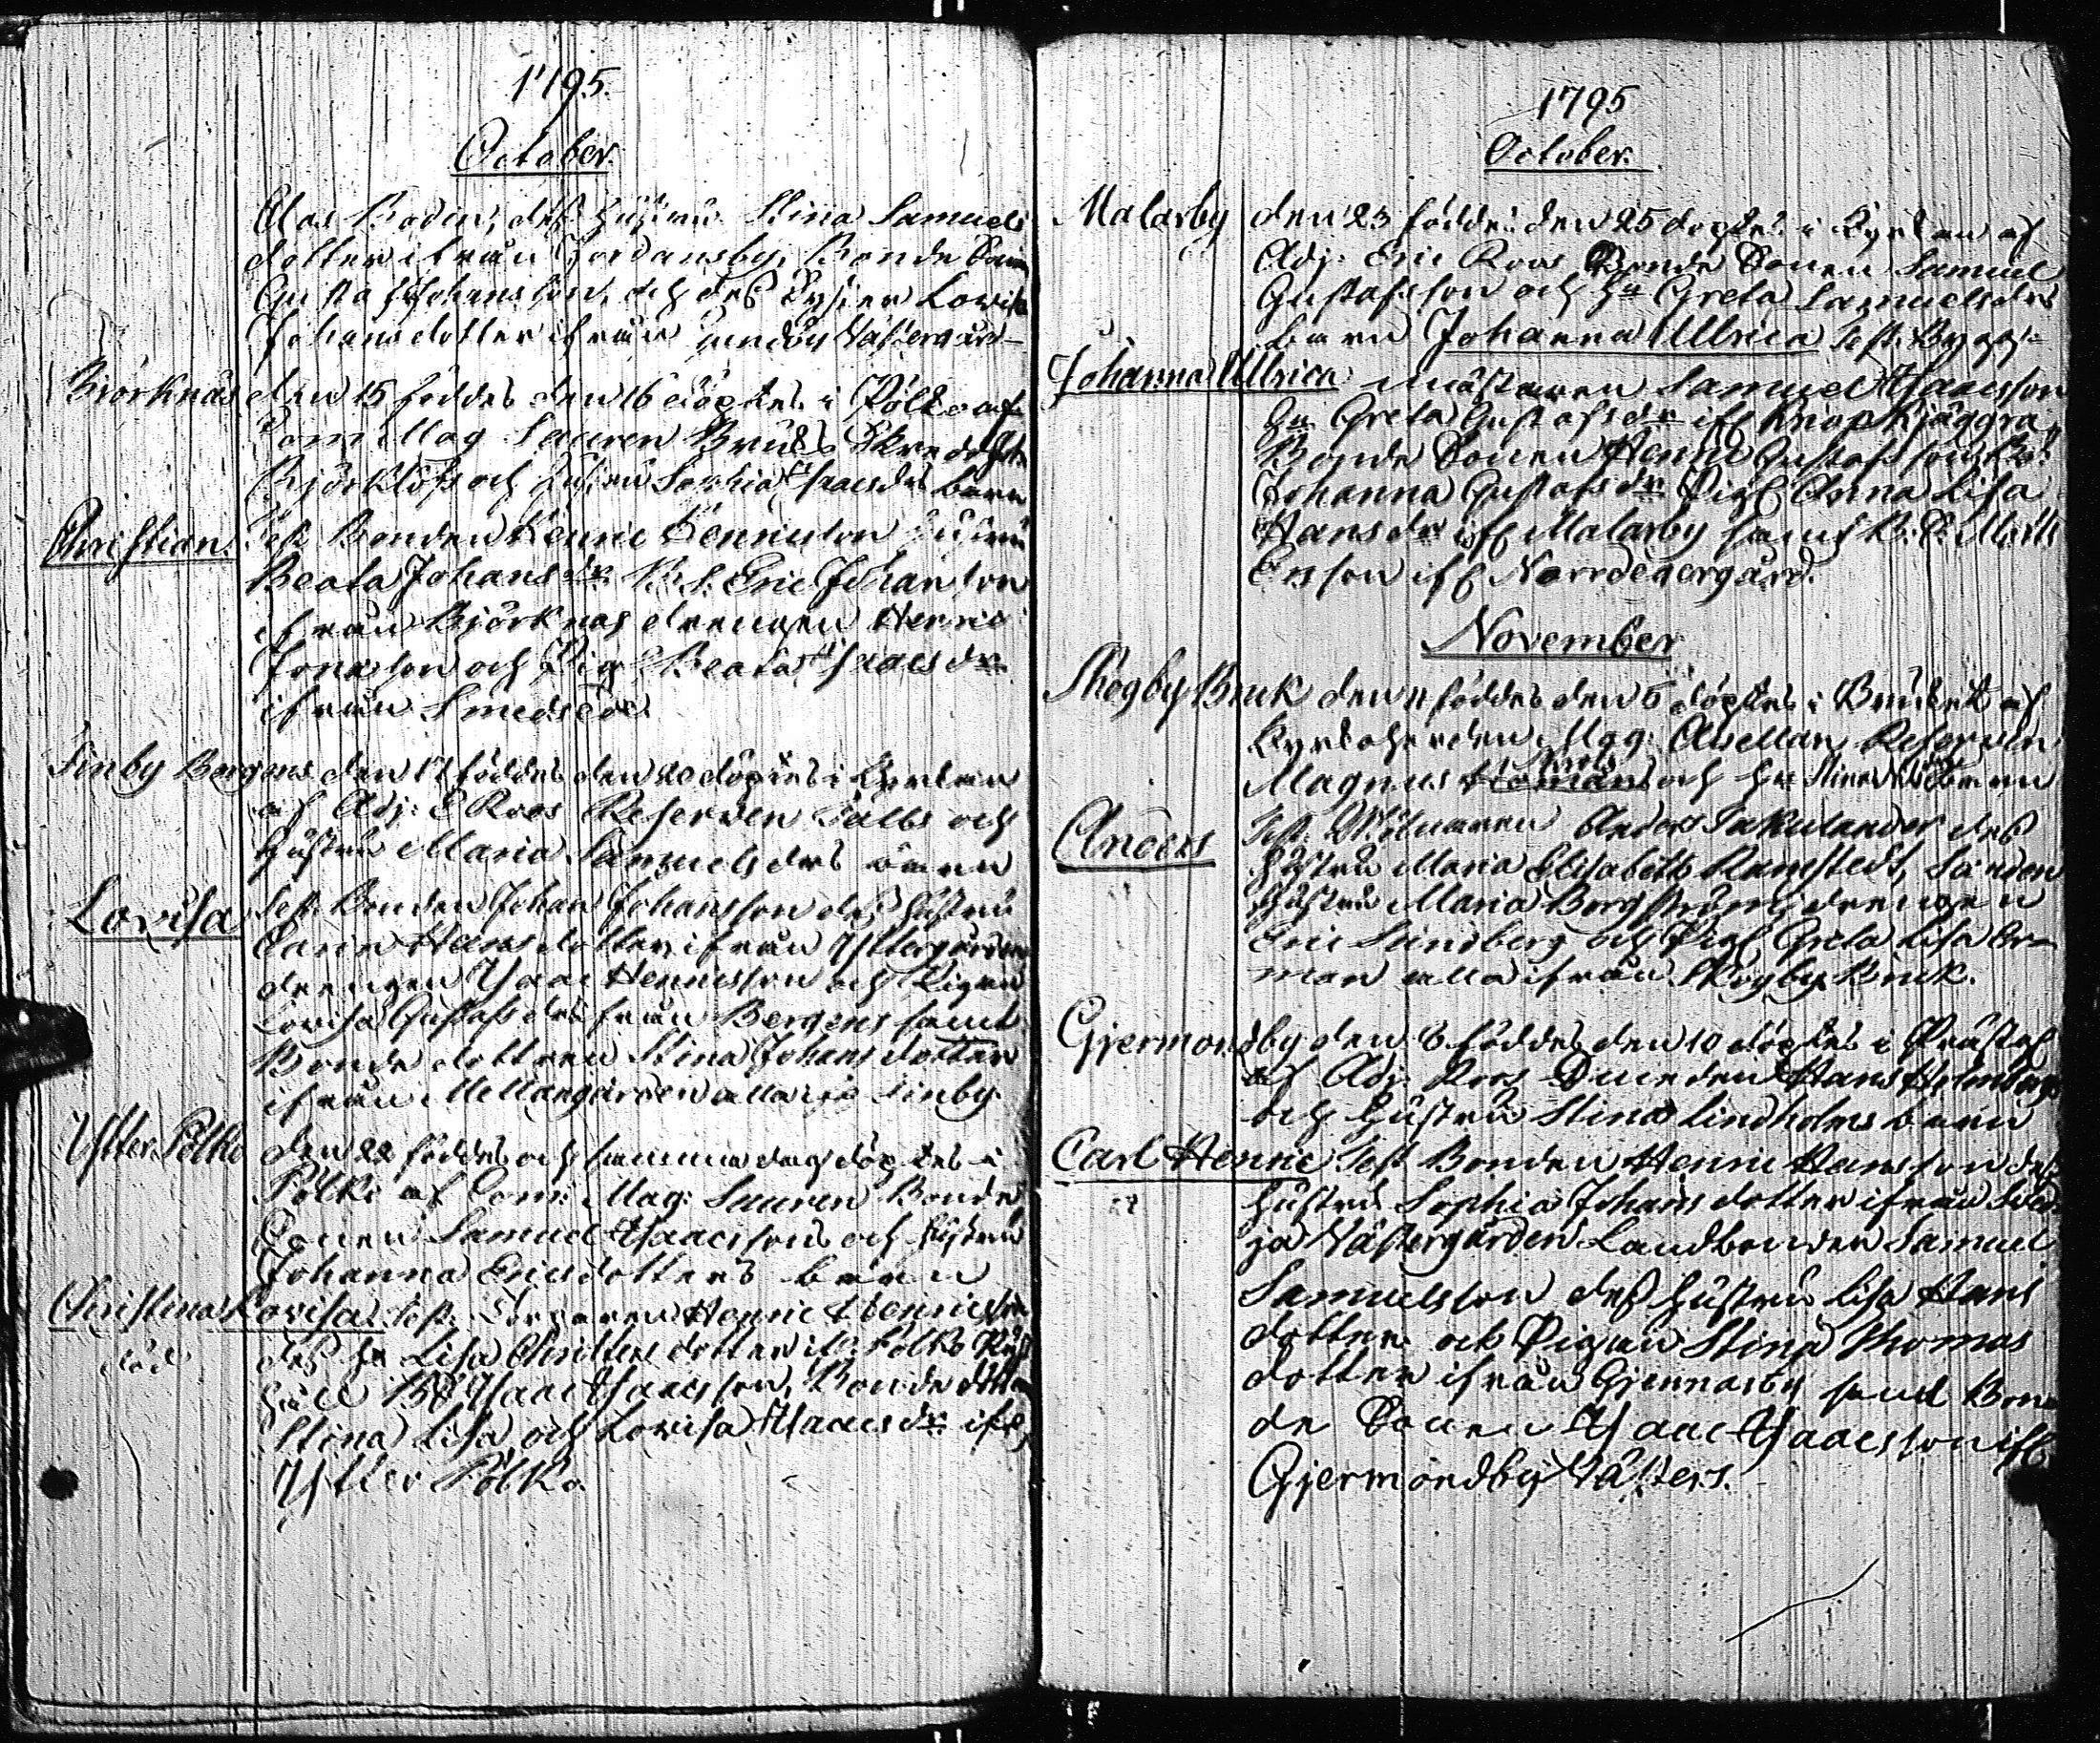 1795.
October.
Clas Bodin, des hustru Stina Samuels
dotter ifrån Jordansby, Bonde Sonen
Gustaf Johansson, och des Syster Lovisa
Johansdotter ifrån Västergård
Björknäs den 15 föddes den 16 döptes i Pölko af
Com. Mag Sauren
Björklöfs och hustru Sophia Isaacsdrs barn
Christian. Test. Bonden Henric Henricsson hustru
Beata Johansdr. B. S. Eric Johansson
ifrån Björknäs drengen Henric
Jonasson och Pig. Beata Isaacsdr
ifrån Smedsede.
Finby Bergens den 17 föddes den 20 döptes i Kyrkan
af Adj. E Roos Reserven Salbs och
hustru Maria Samuelsdrs barn
Lovisa Test. Bonden Johan Johansson des hustru
Carin Hansdotter ifrån Ystergården
drengen Isaac Henricsson och Pigan
Lovisa Gustafsdr ifrån Bergens samt
Bonde dottren Stina Johansdotter
ifrån Mellangården alla ifr Finby.
Yster Pölko den 22 föddes och samma dag döptes i
Pölko af Com. Mag. Sauren Bonde
Sonen Samuel Isaacssons och hustru
Johanna Ericsdotters barn
Christina Lovisa. Test. Henric Henricsson
död des h. Lisa Christersdotter ifr. Pölko
Isaac Isaacsson, Bonde dottren
Stina Lisa och Lovisa Isaacsdr ifr
Yster Pölko.
1795
October.
Malarby den 23 föddes den 25 döptes i Kyrkan af
Adj. Eric Roos Bonde Sonen Samuel
Gustafsson och hu Greta Samuelsdrs
barn Johanna Ullrica Test. Bygg-
Johanna Ullrica mästaren Samuel Isaacsson
hu Greta Gustafsdr ifr Knop Kjäggra
Bonde Sonen Henric Gustafsson
Johanna Gustafsdr Pig. Anna Lisa
Hansdr ifr Malarby samt B. S. Matts
Ersson ifr Norrdenergård.
November
Skogby Bruk den 4 föddes den 5 döptes i Bruket af
Kyrkoherden Mag. Asellan Reserven
Magnus och hu Stina barn
Anders Test. Mölnaren Anders Inkulander des
hustru Maria Elisabeth Ramstedt,
hustru Maria Borgström, drengen
Eric Lundberg och Pig. Greta Lisa Er-
man alla ifrån Skogby Bruk.
Gjermondby den 8 föddes den 10 döptes i Prästg
af Adj. Roos Hans Holmbergs
och hustru Stina Lindholms barn
Carl Henric Test Bonden Henric Hansson des
hustru Sophia Johansdotter ifrån
ja Västergården Landbonden Samuel
Samuelsson des hustru Lisa Hans
dotter och Pigan Stina Thomas
dotter ifrån Gjennäsby samt Bon
de Sonen Isaac Isaacsson ifr
Gjermondby Västers.